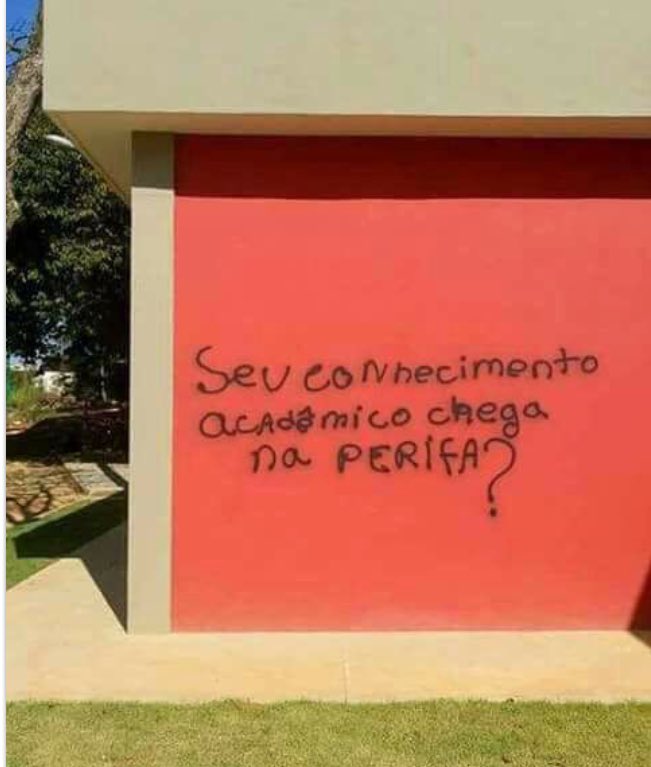 Seu coNhecimento
acAdêmico chega
na PERiFA?